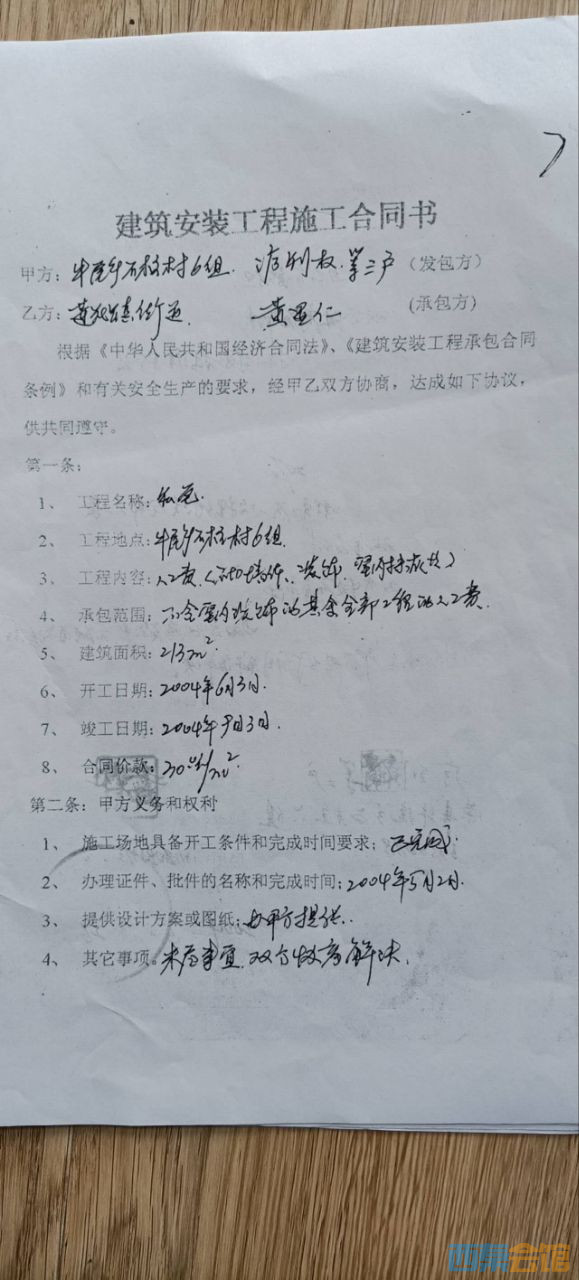 建筑安装工程施工合同书
甲方：牛尾乡石柱村6组. 利权.等三户（发包方）
乙方： 黄 仁 （承包方）
根据《中华人民共和国经济合同法》、《建筑安装工程承包合同
条例》和有关安全生产的要求，经甲乙双方协商，达成如下协议，
供共同遵守。
第一条：
1、 工程名称：私宅.
2、 工程地点：牛尾乡石柱村6组.
3、 工程内容：人工费
4、 承包范围：不含室内装饰的其余全部工程的人工费.
5、 建筑面积：213m².
6、 开工日期：2004年6月3日.
7、 竣工日期：2004年9月3日.
8、 合同价款：/m²
第二条：甲方义务和权利
1、 施工场地具备开工条件和完成时间要求：已完成.
2、 办理证件、批件的名称和完成时间：2004年5月2日.
3、 提供设计方案或图纸：由甲方提供.
4、 其它事项。未尽事宜.双方协商解决.
西祠会馆